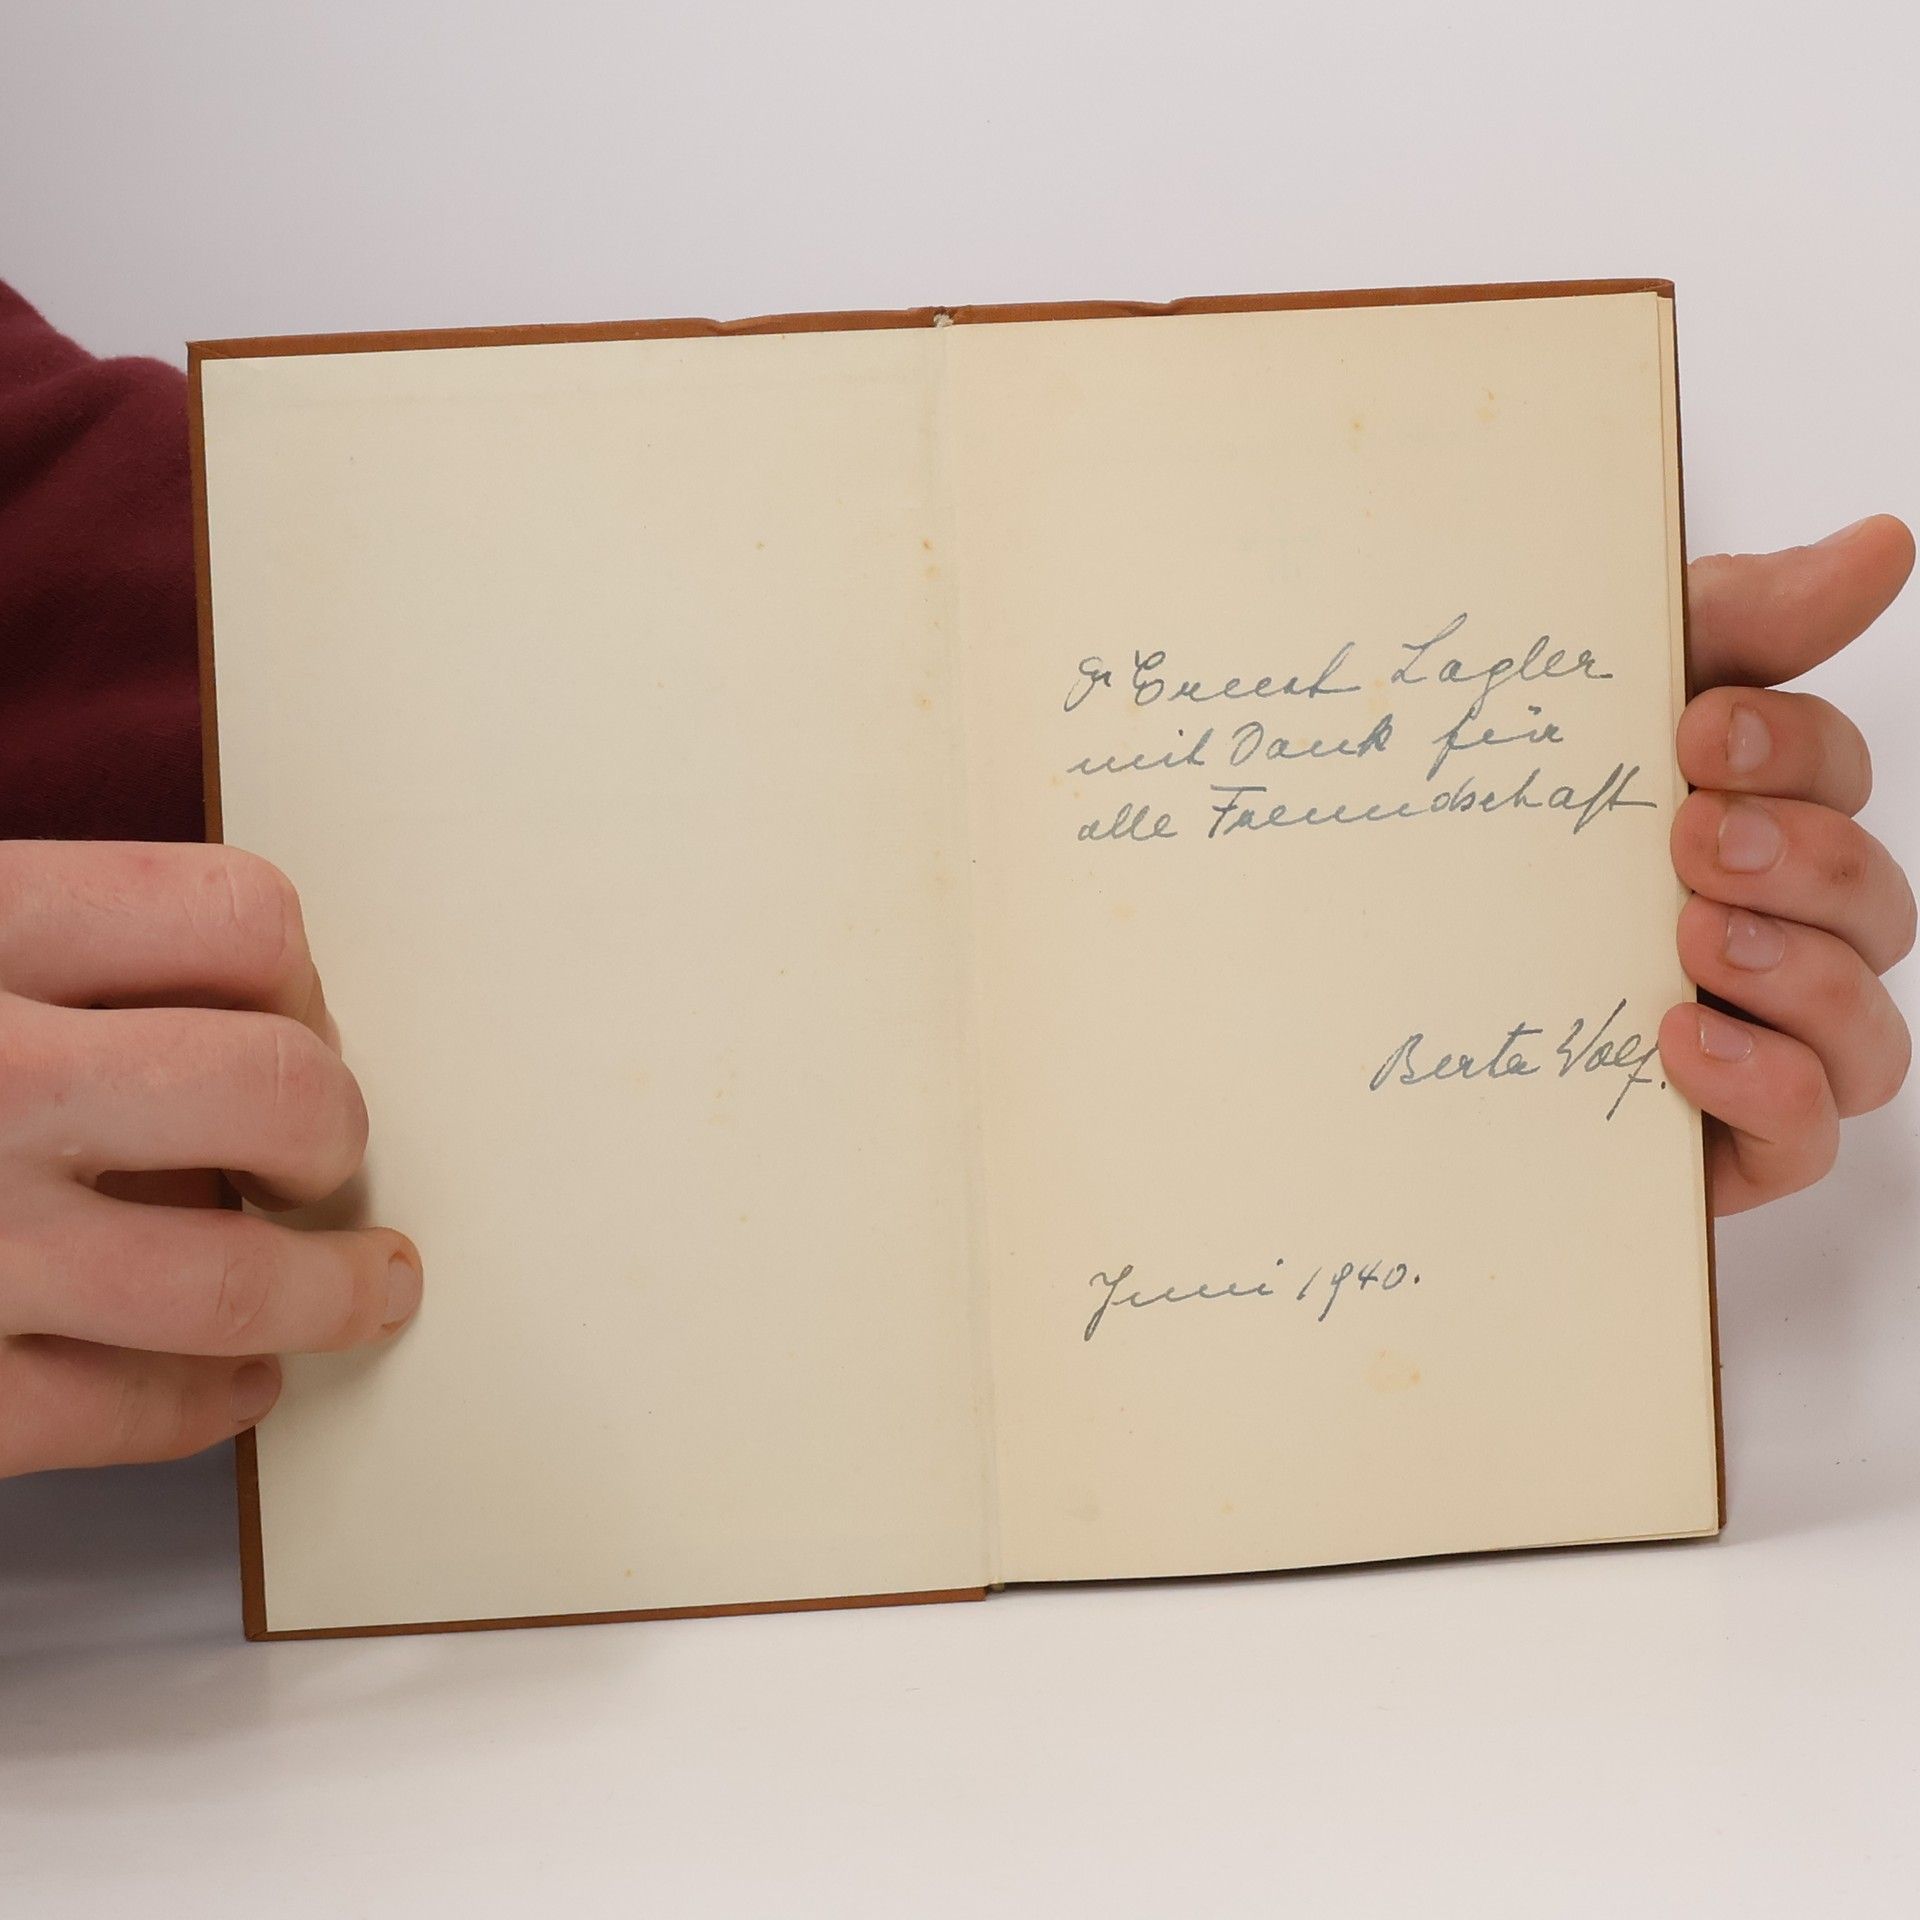 Dr Ernest Lagler
mit Dank für
alle Freundschaft
Berta Wolf.
Juni 1940.